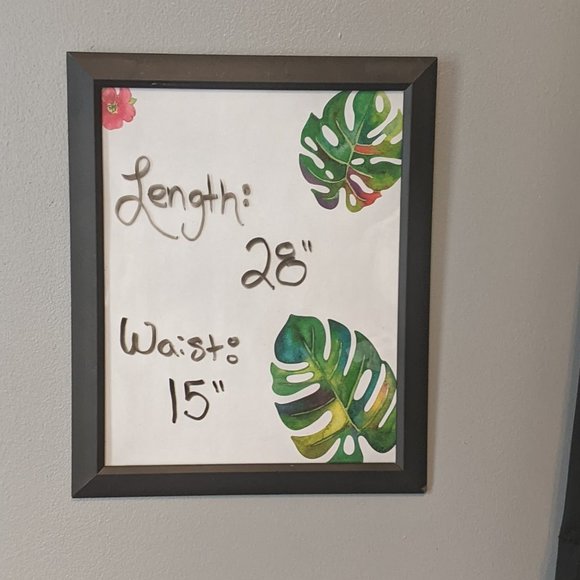 Length:
28"
Waist:
15"